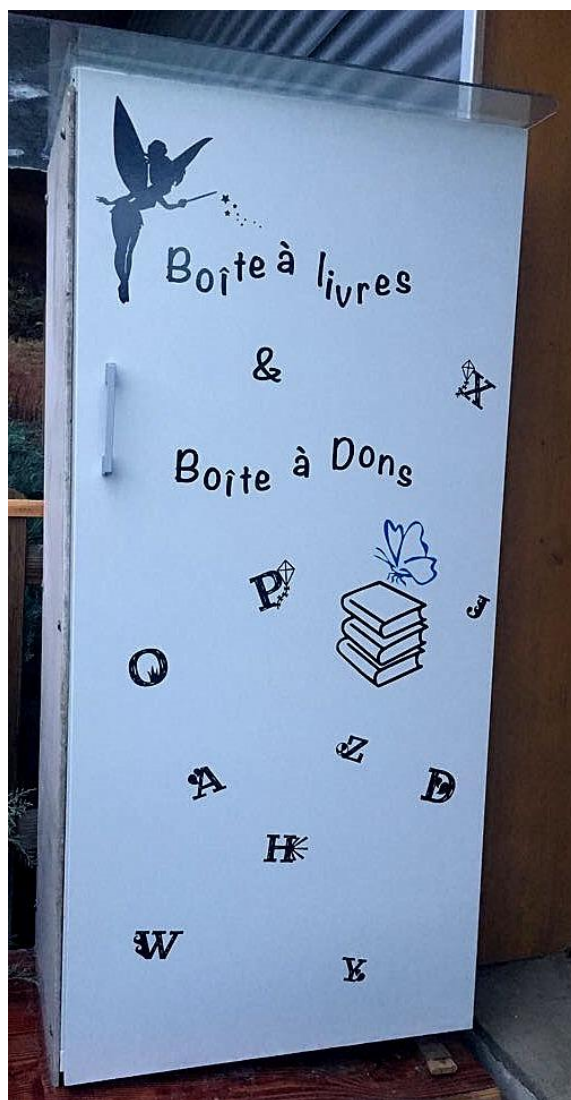 Boîte à livres
&
X
Boîte à Dons
P
J
O
Z
A
D
H
W
Y